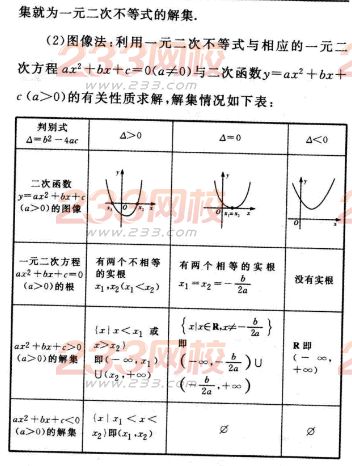 集就为一元二次不等式的解集.
(2)图像法:利用一元二次不等式与相应的一元二
次方程 ax²+bx+c=0(a≠0)与二次函数y=ax²+bx+
c(a>0)的有关性质求解,解集情况如下表:
判别式
Δ=b²-4ac
Δ>0
Δ=0
Δ<0
二次函数
y=ax²+bx+c
(a>0)的图像
y
x₁ O x₂ x
y
O x₁=x₂ x
y
O x
一元二次方程
ax²+bx+c=0
(a>0)的根
有两个不相等
的实根
x₁,x₂(x₁<x₂)
有两个相等的实根
x₁=x₂=-b/2a
没有实根
ax²+bx+c>0
(a>0)的解集
{x|x<x₁ 或
x>x₂}
即(-∞,x₁)
∪(x₂,+∞)
{x|x∈R,x≠-b/2a}
即
(-∞,-b/2a)∪
(-b/2a,+∞)
R即
(-∞,
+∞)
ax²+bx+c<0
(a>0)的解集
{x|x₁<x<
x₂}即(x₁,x₂)
∅
∅
233网校
www.233.com
233网校
www.233.com
233网校
www.233.com